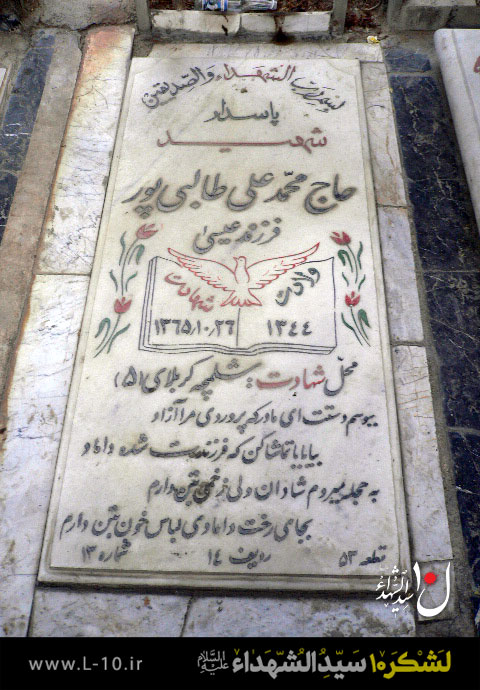 الشهداء والصدیقین
پاسدار
شهید
حاج محمّد علی طالبی پور
فرزند عیسی
ولادت شهادت
۱۳۴۴ ۱۳۶۵،۱۰،۲۶
محل شهادت: شلمچه کربلای (۵)
ببوسم دستت ای مادر که پروردی مرا آزاد
بیا بابا تماشا کن که فرزندت شده داماد
به حجله میروم شادان ولی زخمی بتن دارم
بجای رخت دامادی لباس خون بتن دارم
قطعه ۵۳ ردیف ۱۴ شماره ۱۳
ل۱۰ سیدالشهداء
لَشگر۱۰ سَیِّدُالشُّهَداء عَلَیهِ السَّلام
www.L-10.ir